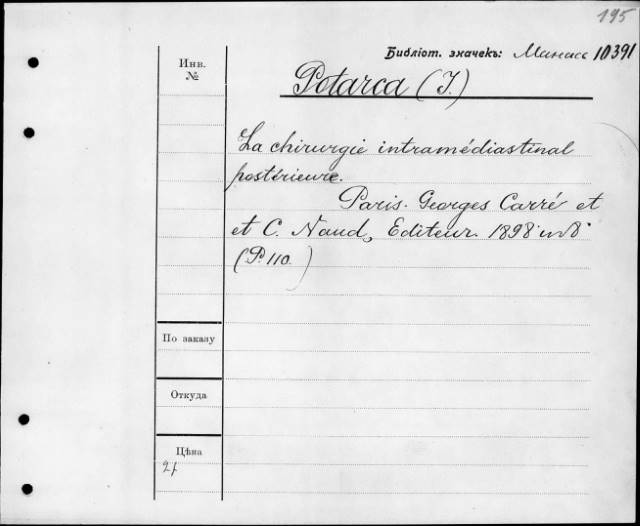 195
Библіот. значекъ: Манасс 10391
Инв.
№
Potarca (J.)
La chirurgie intramédiastinal
postérieure.
Paris. Georges Carré et
et C. Naud, Editeur. 1898 in 8°
(P. 110.)
По заказу
Откуда
Цѣна
2f